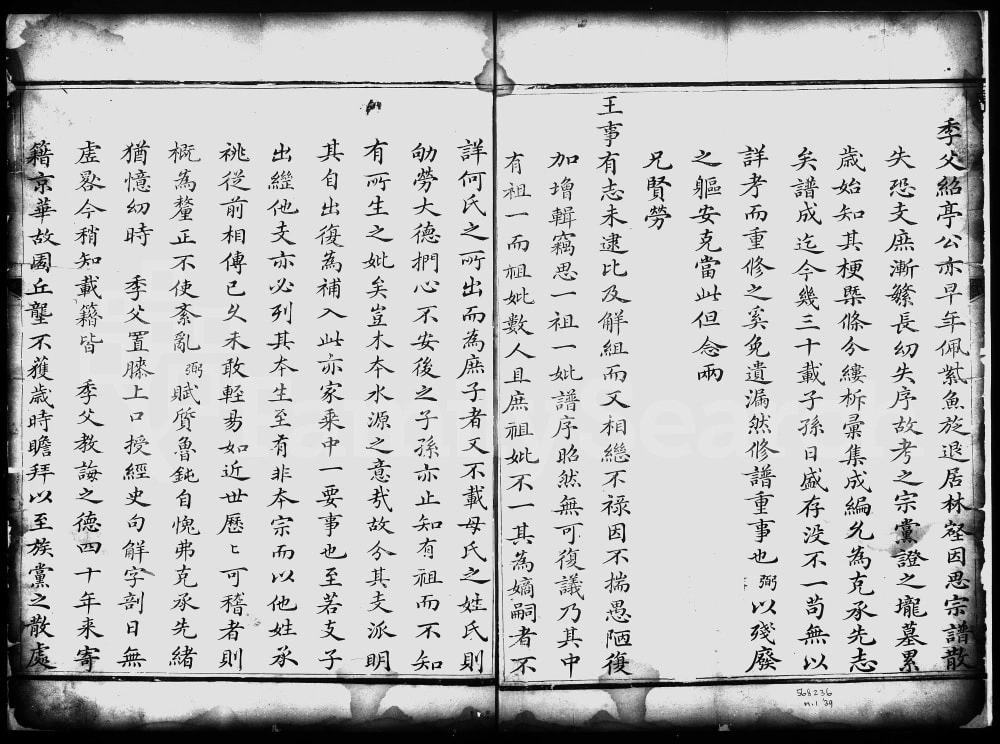 季父紹亭公亦早年佩紫魚於退居林壑因思宗譜散
失恐支庶漸繁長幼失序故考之宗黨證之壠墓累
歲始知其梗槩條分縷析彙集成編允為克承先志
矣譜成迄今幾三十載子孫日盛存没不一苟無以
詳考而重修之奚免遺漏然修譜重事也弼以殘廢
之軀安克當此但念兩
兄賢勞
王事有志未逮比及解組而又相繼不祿因不揣愚陋復
加增輯竊思一祖一妣譜序昭然無可復議乃其中
有祖一而祖妣數人且庶祖妣不一其為嫡嗣者不
詳何氏之所出而為庶子者又不載母氏之姓氏則
劬勞大德捫心不安後之子孫亦止知有祖而不知
有所生之妣矣豈木本水源之意哉故分其支派明
其自出復為補入此亦家乘中一要事也至若支子
出繼他支亦必列其本生至有非本宗而以他姓承
祧從前相傳已久未敢輕易如近世歷〻可稽者則
概為釐正不使紊亂弼賦質魯鈍自愧弗克承先緒
猶憶幼時 季父置膝上口授經史句解字剖日無
虛晷今稍知載籍皆 季父教誨之德四十年來寄
籍京華故國丘壟不獲歲時瞻拜以至族黨之散處
568236
n.1 '39
FamilySearch